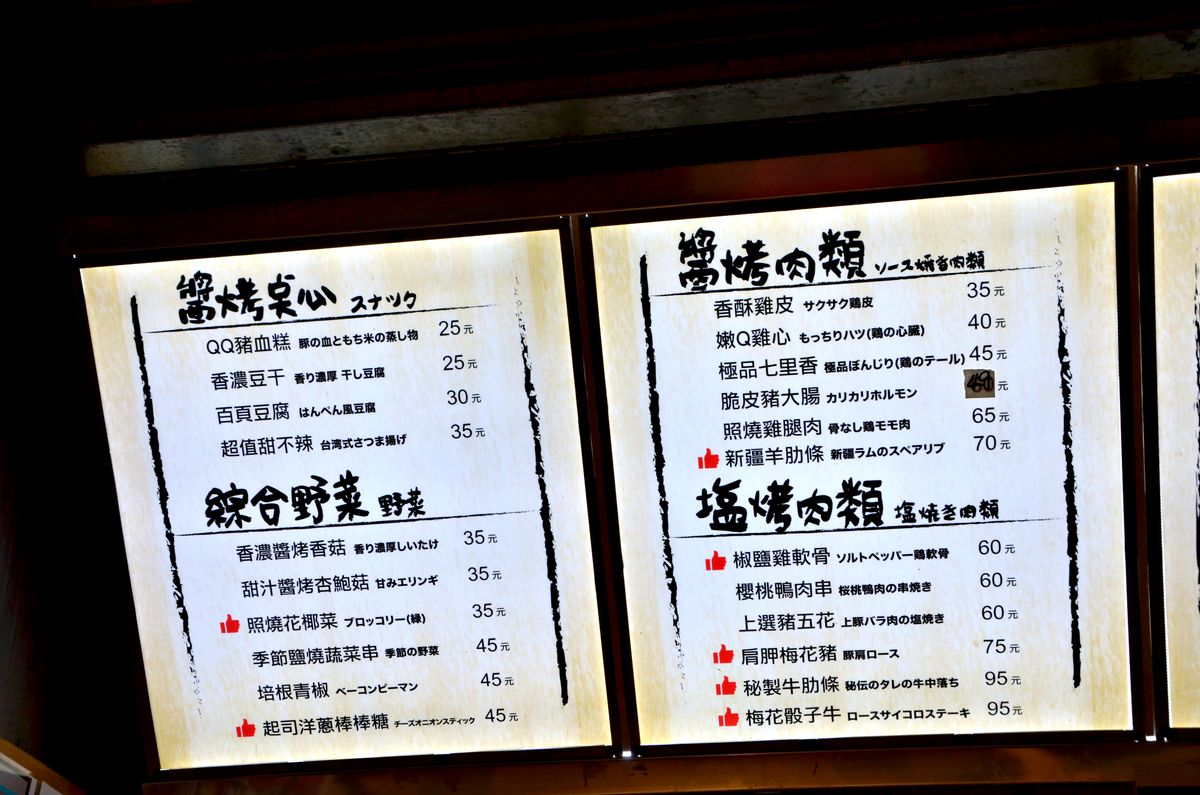 醬烤桌心 スナック
QQ豬血糕 豚の血ともち米の蒸し物 25元
香濃豆干 香り濃厚 干し豆腐 25元
百頁豆腐 はんぺん風豆腐 30元
超值甜不辣 台湾式さつま揚げ 35元
綜合野菜 野菜
香濃醬烤香菇 香り濃厚しいたけ 35元
甜汁醬烤杏鮑菇 甘みエリンギ 35元
照燒花椰菜 ブロッコリー(緑) 35元
季節鹽燒蔬菜串 季節の野菜 45元
培根青椒 ベーコンピーマン 45元
起司洋蔥棒棒糖 チーズオニオンスティック 45元
醬烤肉類 ソース焼き肉類
香酥雞皮 サクサク鶏皮 35元
嫩Q雞心 もっちりハツ(鶏の心臓) 40元
極品七里香 極品ぼんじり(鶏のテール) 45元
脆皮豬大腸 カリカリホルモン 元
照燒雞腿肉 骨なし鶏モモ肉 65元
新疆羊肋條 新疆ラムのスペアリブ 70元
塩烤肉類 塩焼き肉類
椒鹽雞軟骨 ソルトペッパー鶏軟骨 60元
櫻桃鴨肉串 桜桃鴨肉の串焼き 60元
上選豬五花 上豚バラ肉の塩焼き 60元
肩胛梅花豬 豚肩ロース 75元
秘製牛肋條 秘伝のタレの牛中落ち 95元
梅花骰子牛 ロースサイコロステーキ 95元